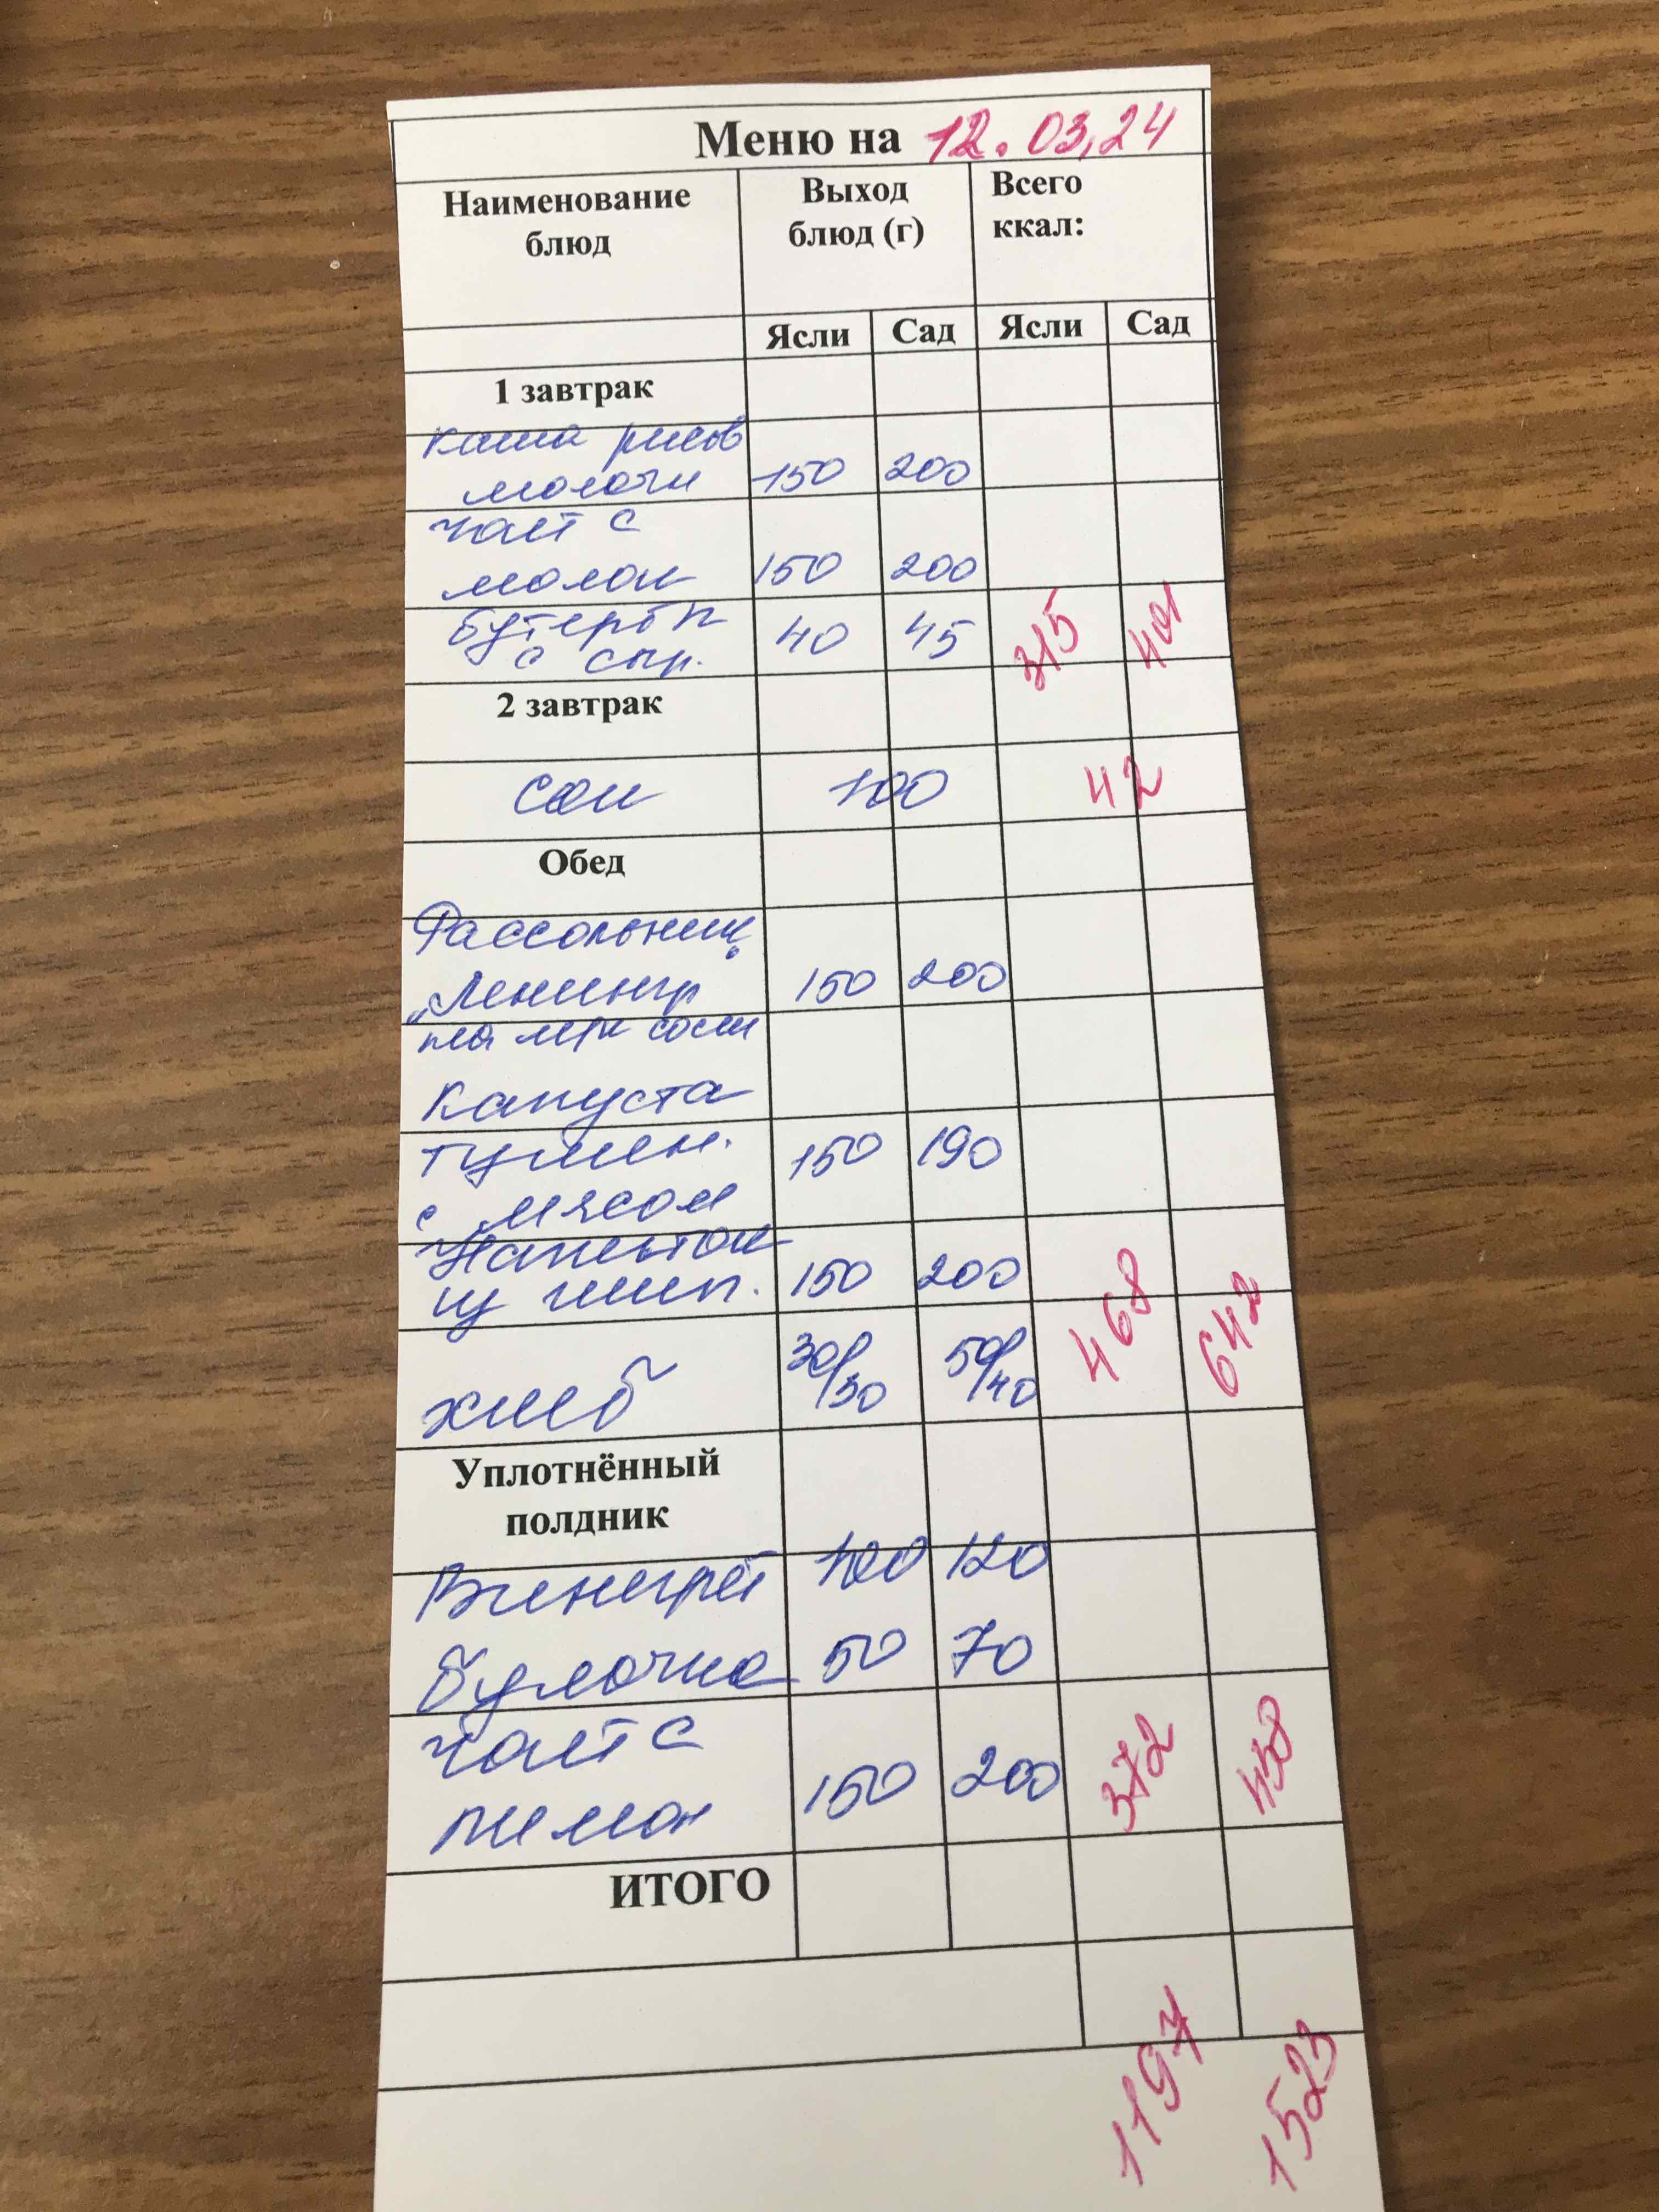 Меню на 12.03,24
Наименование блюд
Выход блюд (г)
Всего ккал:
Ясли Сад Ясли Сад
1 завтрак
каша рисов
молочн 150 200
чай с
молок 150 200
бутерб
с сыр. 40 45 315 401
2 завтрак
сок 100 42
Обед
Рассольник
"Ленингр" 150 200
на мяс
капуста
тушен. 150 190
с мясом
Напиток
из шип. 150 200
хлеб 30/30 50/40 468 642
Уплотнённый
полдник
Винегрет 100 120
булочка 50 70
чай с
лимон 150 200 372 438
ИТОГО
1197 1523